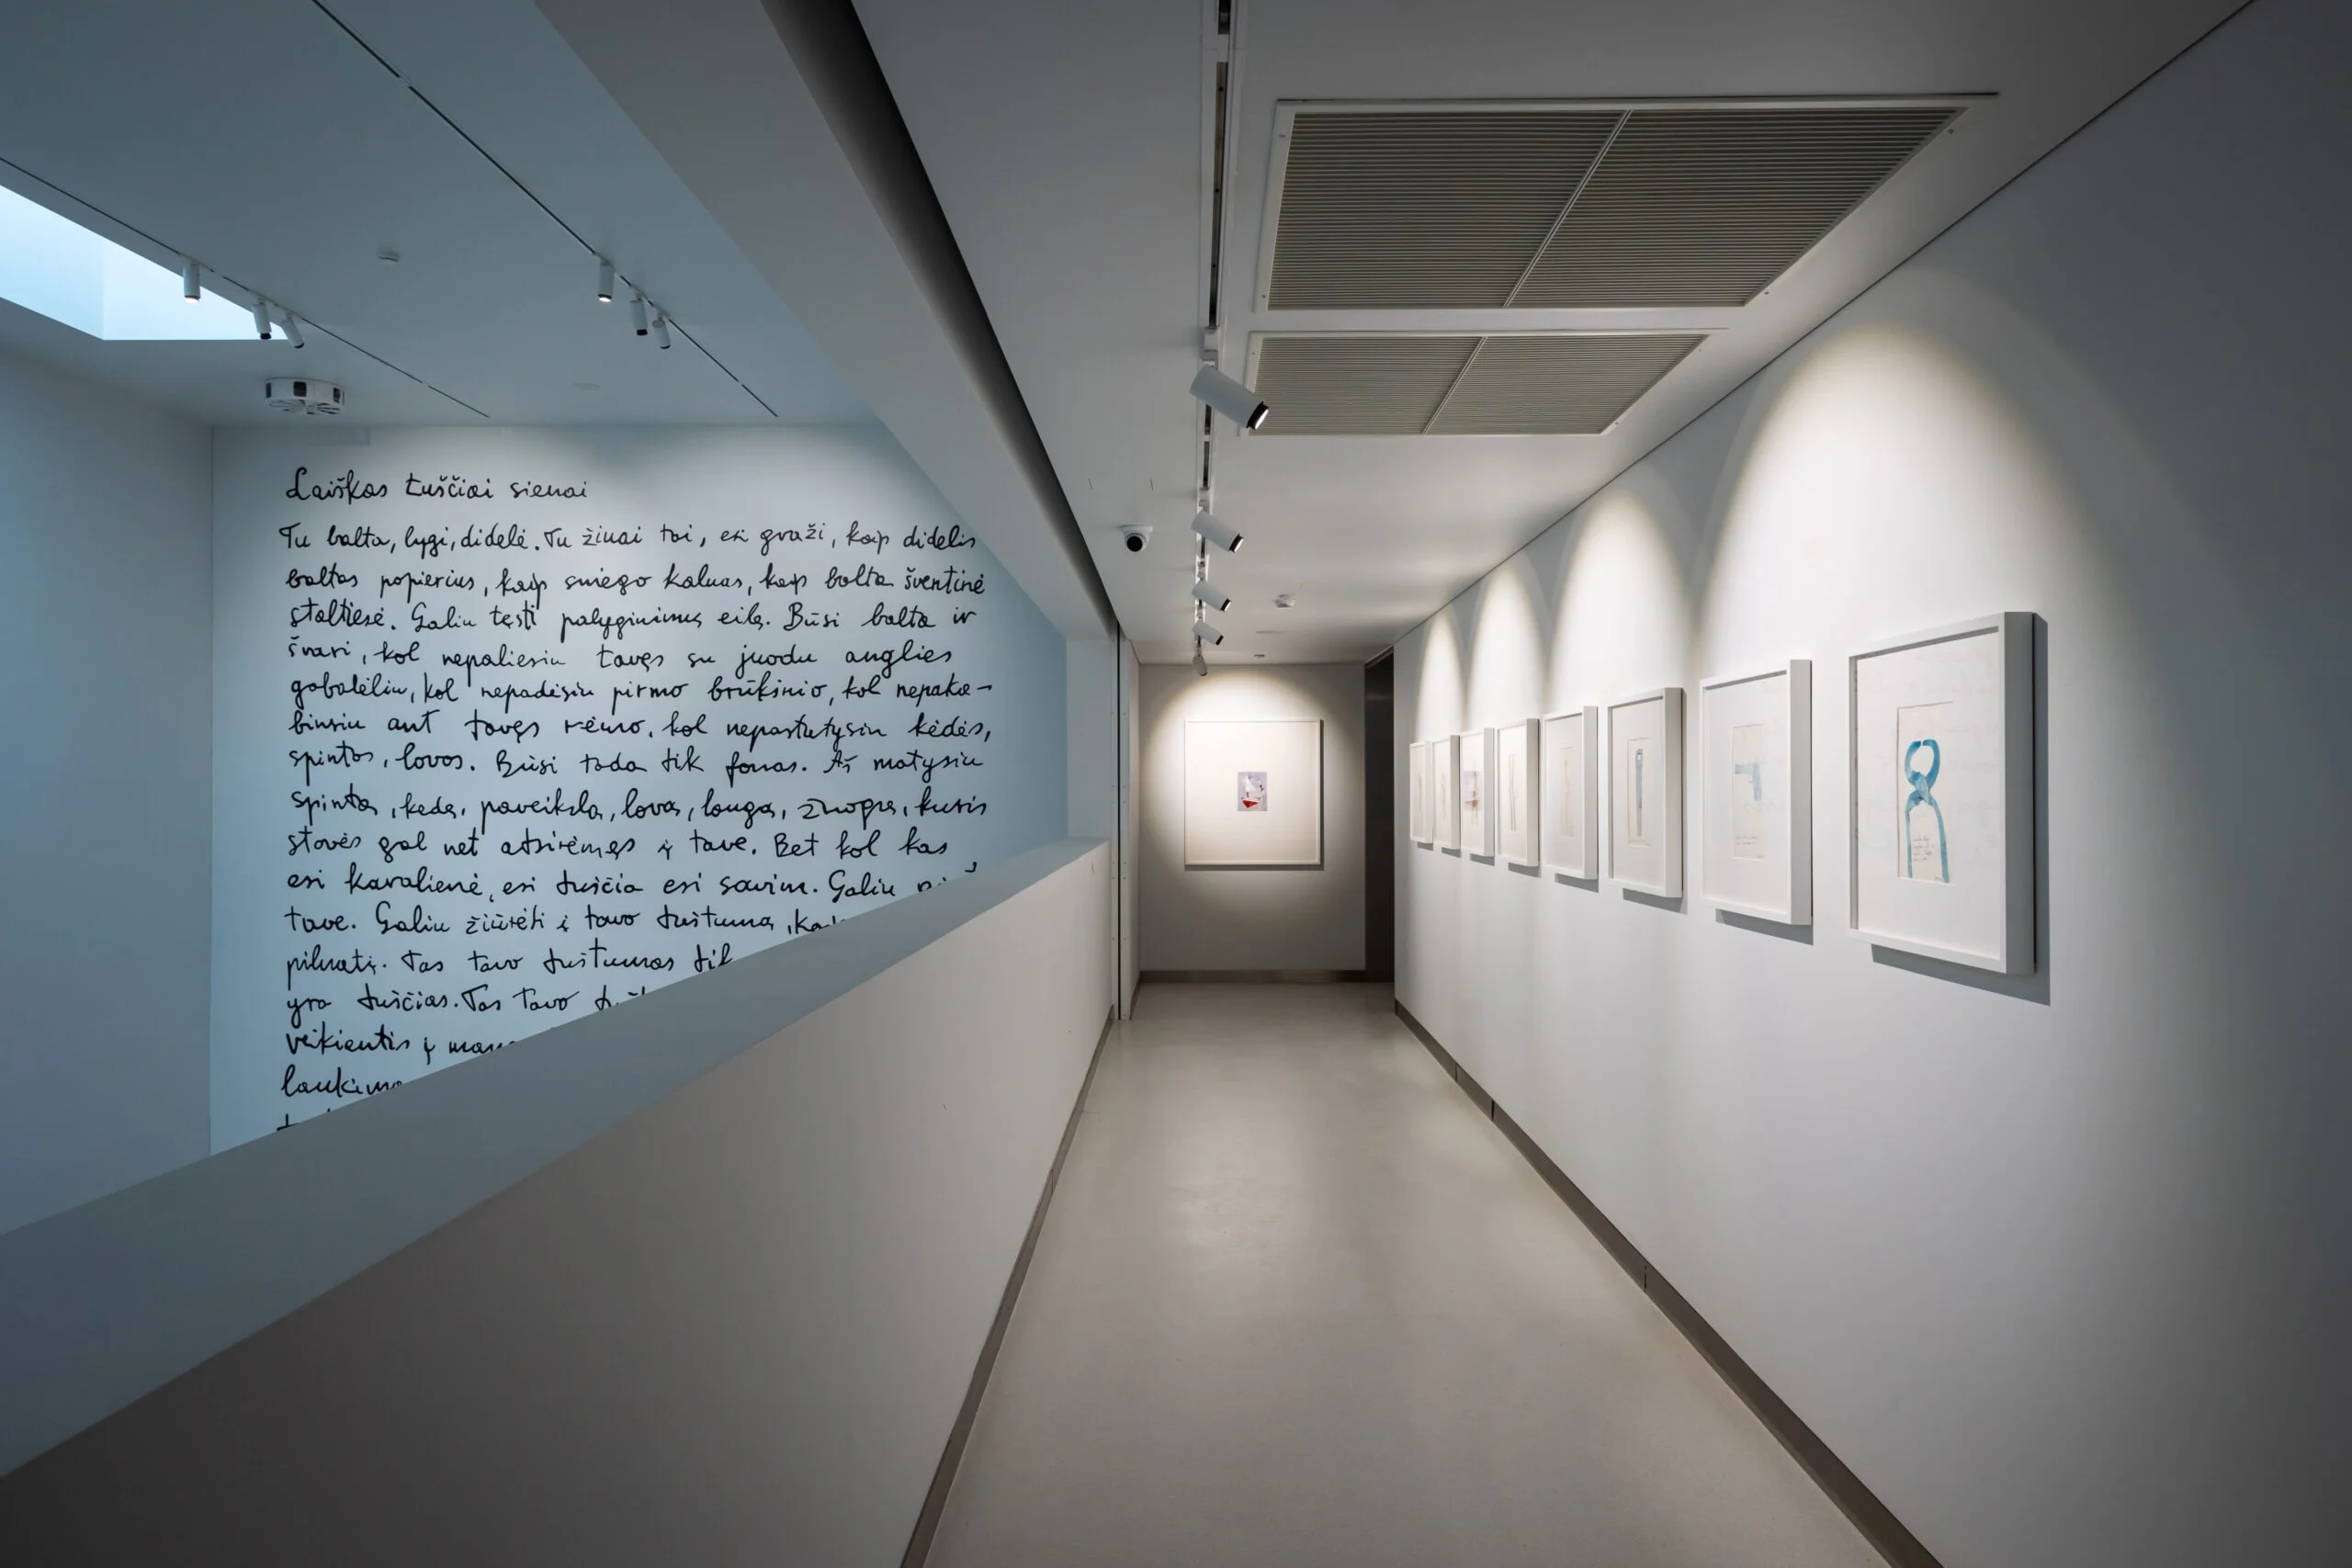 Laiškas tuščiai sienai
Tu balta, lygi, didelė. Tu žinai tai, esi graži, kaip didelis
baltas popierius, kaip sniego kalnas, kaip balta šventinė
staltiesė. Galiu tęsti palyginimų eilę. Būsi balta ir
švari, kol nepaliesiu tavęs su juodu anglies
gabalėliu, kol nepadėsiu pirmo brūkšnio, kol nepaka-
binsiu ant tavęs rėmo, kol nepastatysiu kėdės,
spintos, lovos. Būsi tada tik fonas. Aš matysiu
spintą, kėdę, paveikslą, lovą, langą, žmogų, kuris
stovės gal net atsirėmęs į tave. Bet kol kas
esi karalienė, esi tuščia esi savim. Galiu
tave. Galiu žiūrėti į tavo tuštumą,
pilnatį. Tas tavo tuštumas
yra tuščias. Tas Tavo
veikiantis į